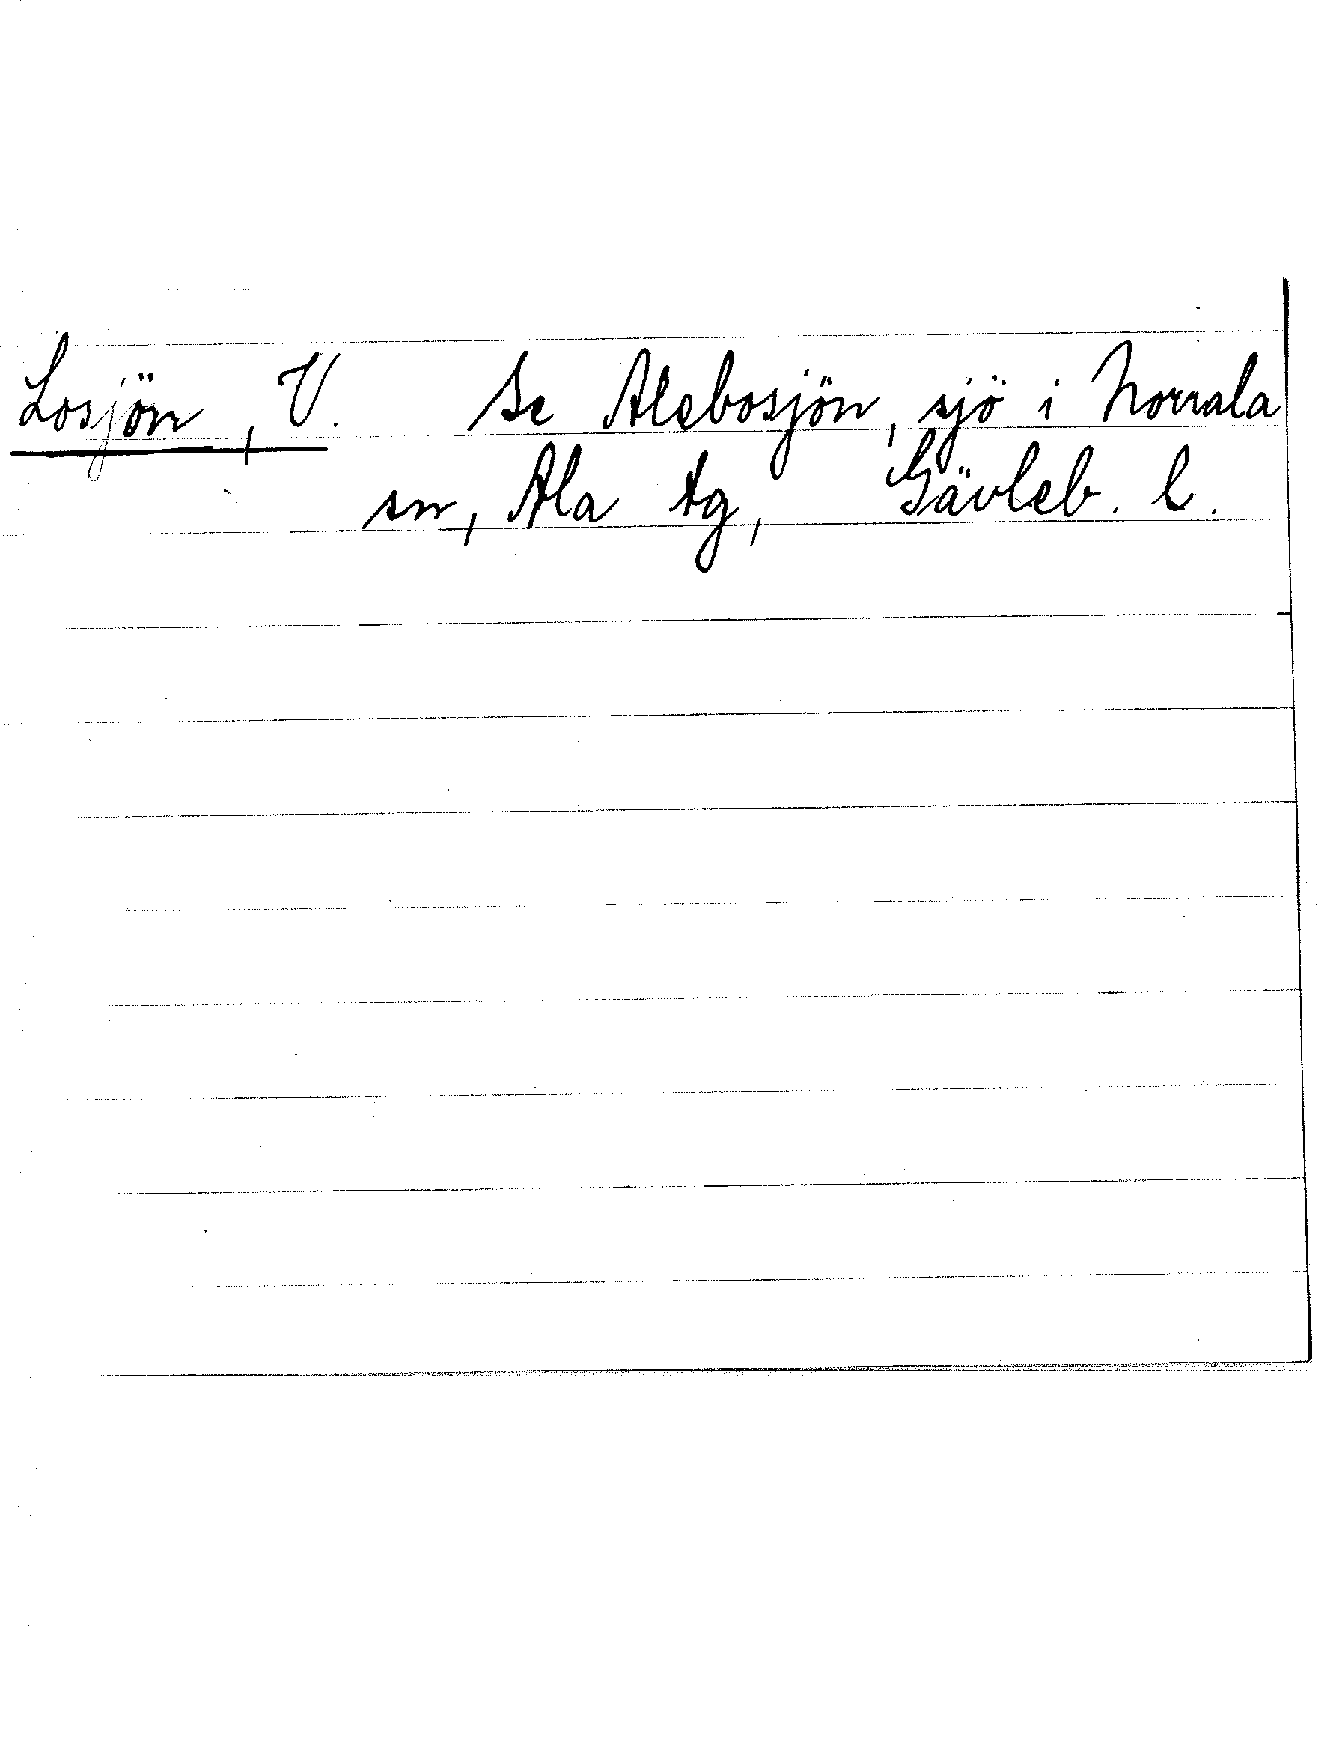 Losjön, V. Se Alebosjön, sjö i Norrala
sn, Ala tg, Gävleb. l.